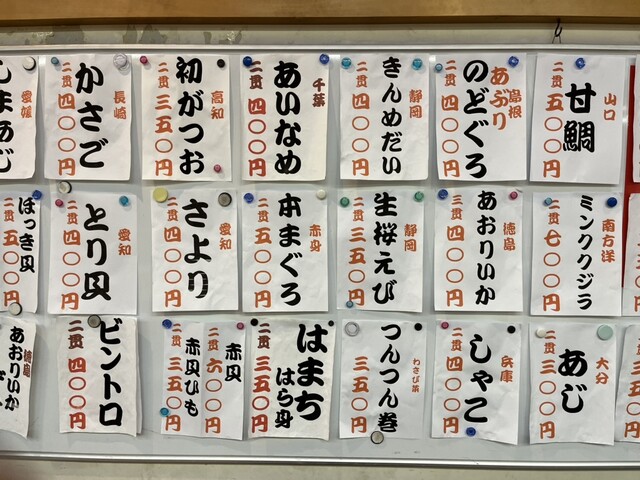 山口
甘鯛
二貫五〇〇円
島根
あぶり
のどぐろ
二貫四〇〇円
静岡
きんめだい
二貫四〇〇円
千葉
あいなめ
二貫四〇〇円
高知
初がつお
二貫三五〇円
長崎
かさご
二貫四〇〇円
愛媛
しまあじ
南方洋
ミンククジラ
二貫七〇〇円
徳島
あおりいか
二貫四〇〇円
静岡
生桜えび
二貫五〇〇円
赤身
本まぐろ
二貫五〇〇円
愛知
さより
二貫四〇〇円
愛知
とり貝
二貫四〇〇円
ほっき貝
二貫五〇〇円
大分
あじ
二貫三〇〇円
兵庫
しゃこ
二貫三五〇円
わさび菜
つんつん巻
三五〇円
はまち
はら身
二貫三五〇円
赤貝
二貫六〇〇円
赤貝ひも
二貫三五〇円
ビントロ
二貫四〇〇円
徳島
あおりいか